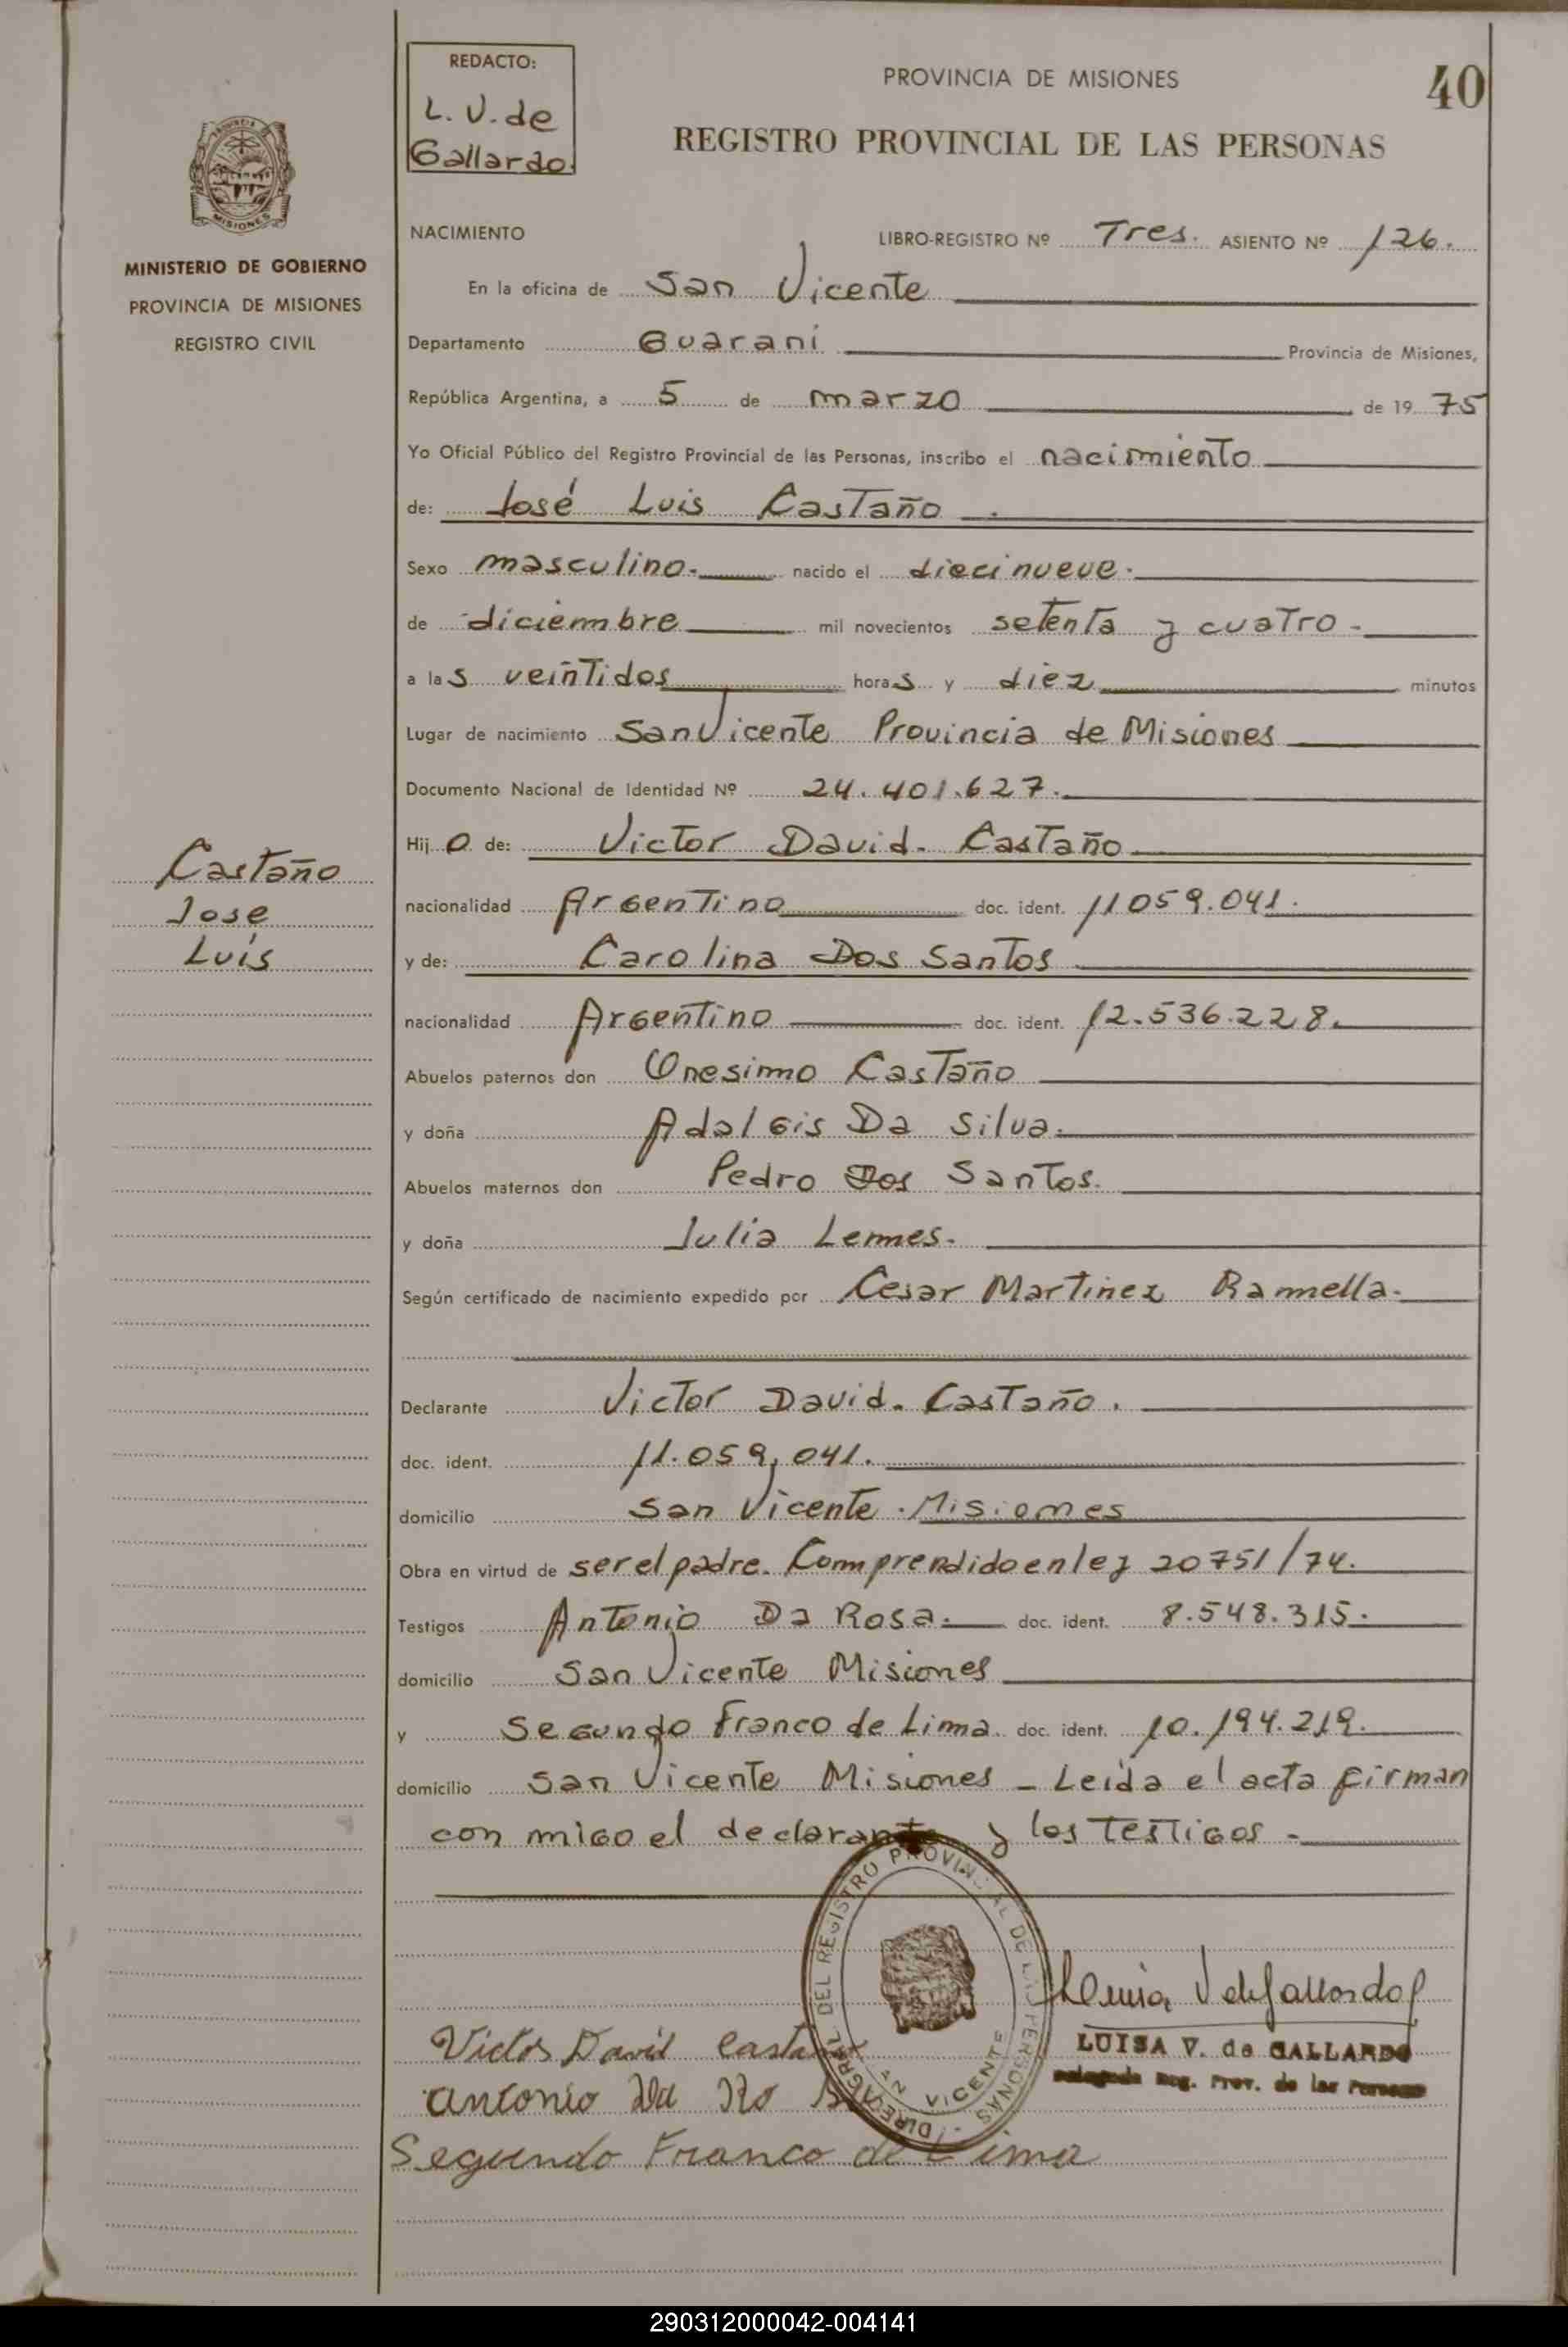 REDACTO:
L. V. de
Gallardo.
PROVINCIA DE MISIONES
40
REGISTRO PROVINCIAL DE LAS PERSONAS
MISIONES
MINISTERIO DE GOBIERNO
PROVINCIA DE MISIONES
REGISTRO CIVIL
NACIMIENTO
LIBRO-REGISTRO Nº Tres. ASIENTO Nº 126.
En la oficina de San Vicente
Departamento Guarani Provincia de Misiones,
República Argentina, a 5 de marzo de 19 75
Yo Oficial Público del Registro Provincial de las Personas, inscribo el nacimiento
de: José Luis Castaño.
Sexo masculino. nacido el diecinueve.
de diciembre mil novecientos setenta y cuatro.
a las veintidos horas y diez minutos
Lugar de nacimiento San Vicente Provincia de Misiones
Documento Nacional de Identidad Nº 24.401.627.
Hijo de: Victor David. Castaño
nacionalidad Argentino doc. ident. 11059.041.
y de: Carolina Dos Santos
nacionalidad Argentino doc. ident. 12.536.228.
Abuelos paternos don Onesimo Castaño
y doña Adalgis Da Silva.
Abuelos maternos don Pedro Dos Santos.
y doña Julia Lemes.
Según certificado de nacimiento expedido por Cesar Martinez Ramella.
Declarante Victor David. Castaño.
doc. ident. 11.059,041.
domicilio San Vicente. Misiones
Obra en virtud de ser el padre. Comprendido en ley 20751/74.
Testigos Antonio Da Rosa. doc. ident. 8.548.315.
domicilio San Vicente Misiones
y Segundo Franco de Lima. doc. ident. 10.194.219.
domicilio San Vicente Misiones - Leida el acta firman
con migo el declarante y los testigos -
Castaño
Jose
Luis
DIREC. GRAL. DEL REGISTRO PROVINCIAL DE LAS PERSONAS
SAN VICENTE
Luisa V de Gallardo
LUISA V. de GALLARDO
Delegada Reg. Prov. de las Personas
Victor David Castaño
Antonio Da Ro Sa
Segundo Franco de Lima
290312000042-004141